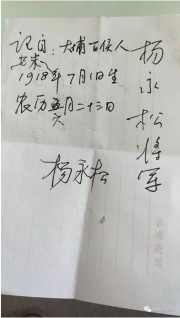 杨永松将军
记自：大埔百侯人
1918年7月1日生
农历五月二十三日
六
杨永松